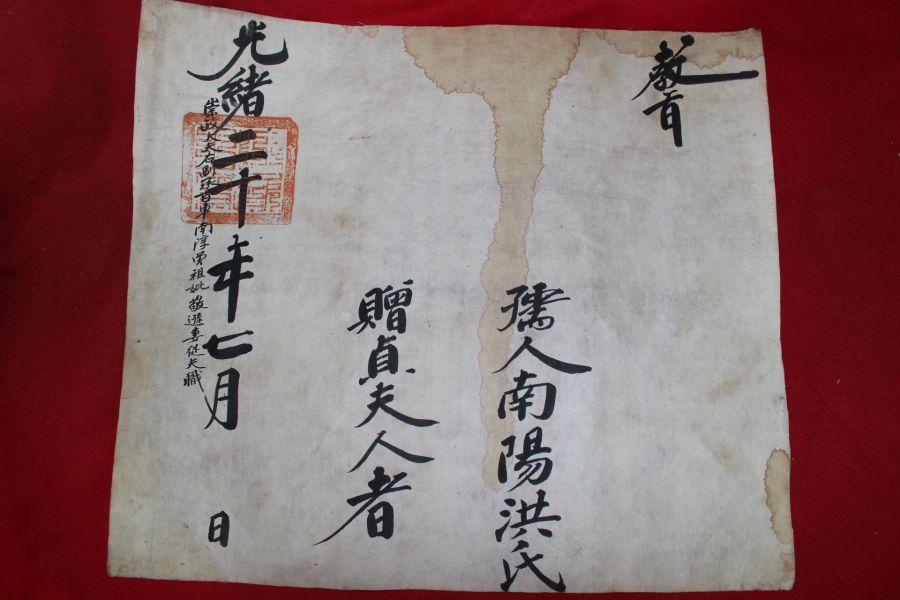 教旨
孺人南陽洪氏
贈貞夫人者
光緒二十年七月 日
大夫右副承旨車南淳曾祖妣妻從夫職